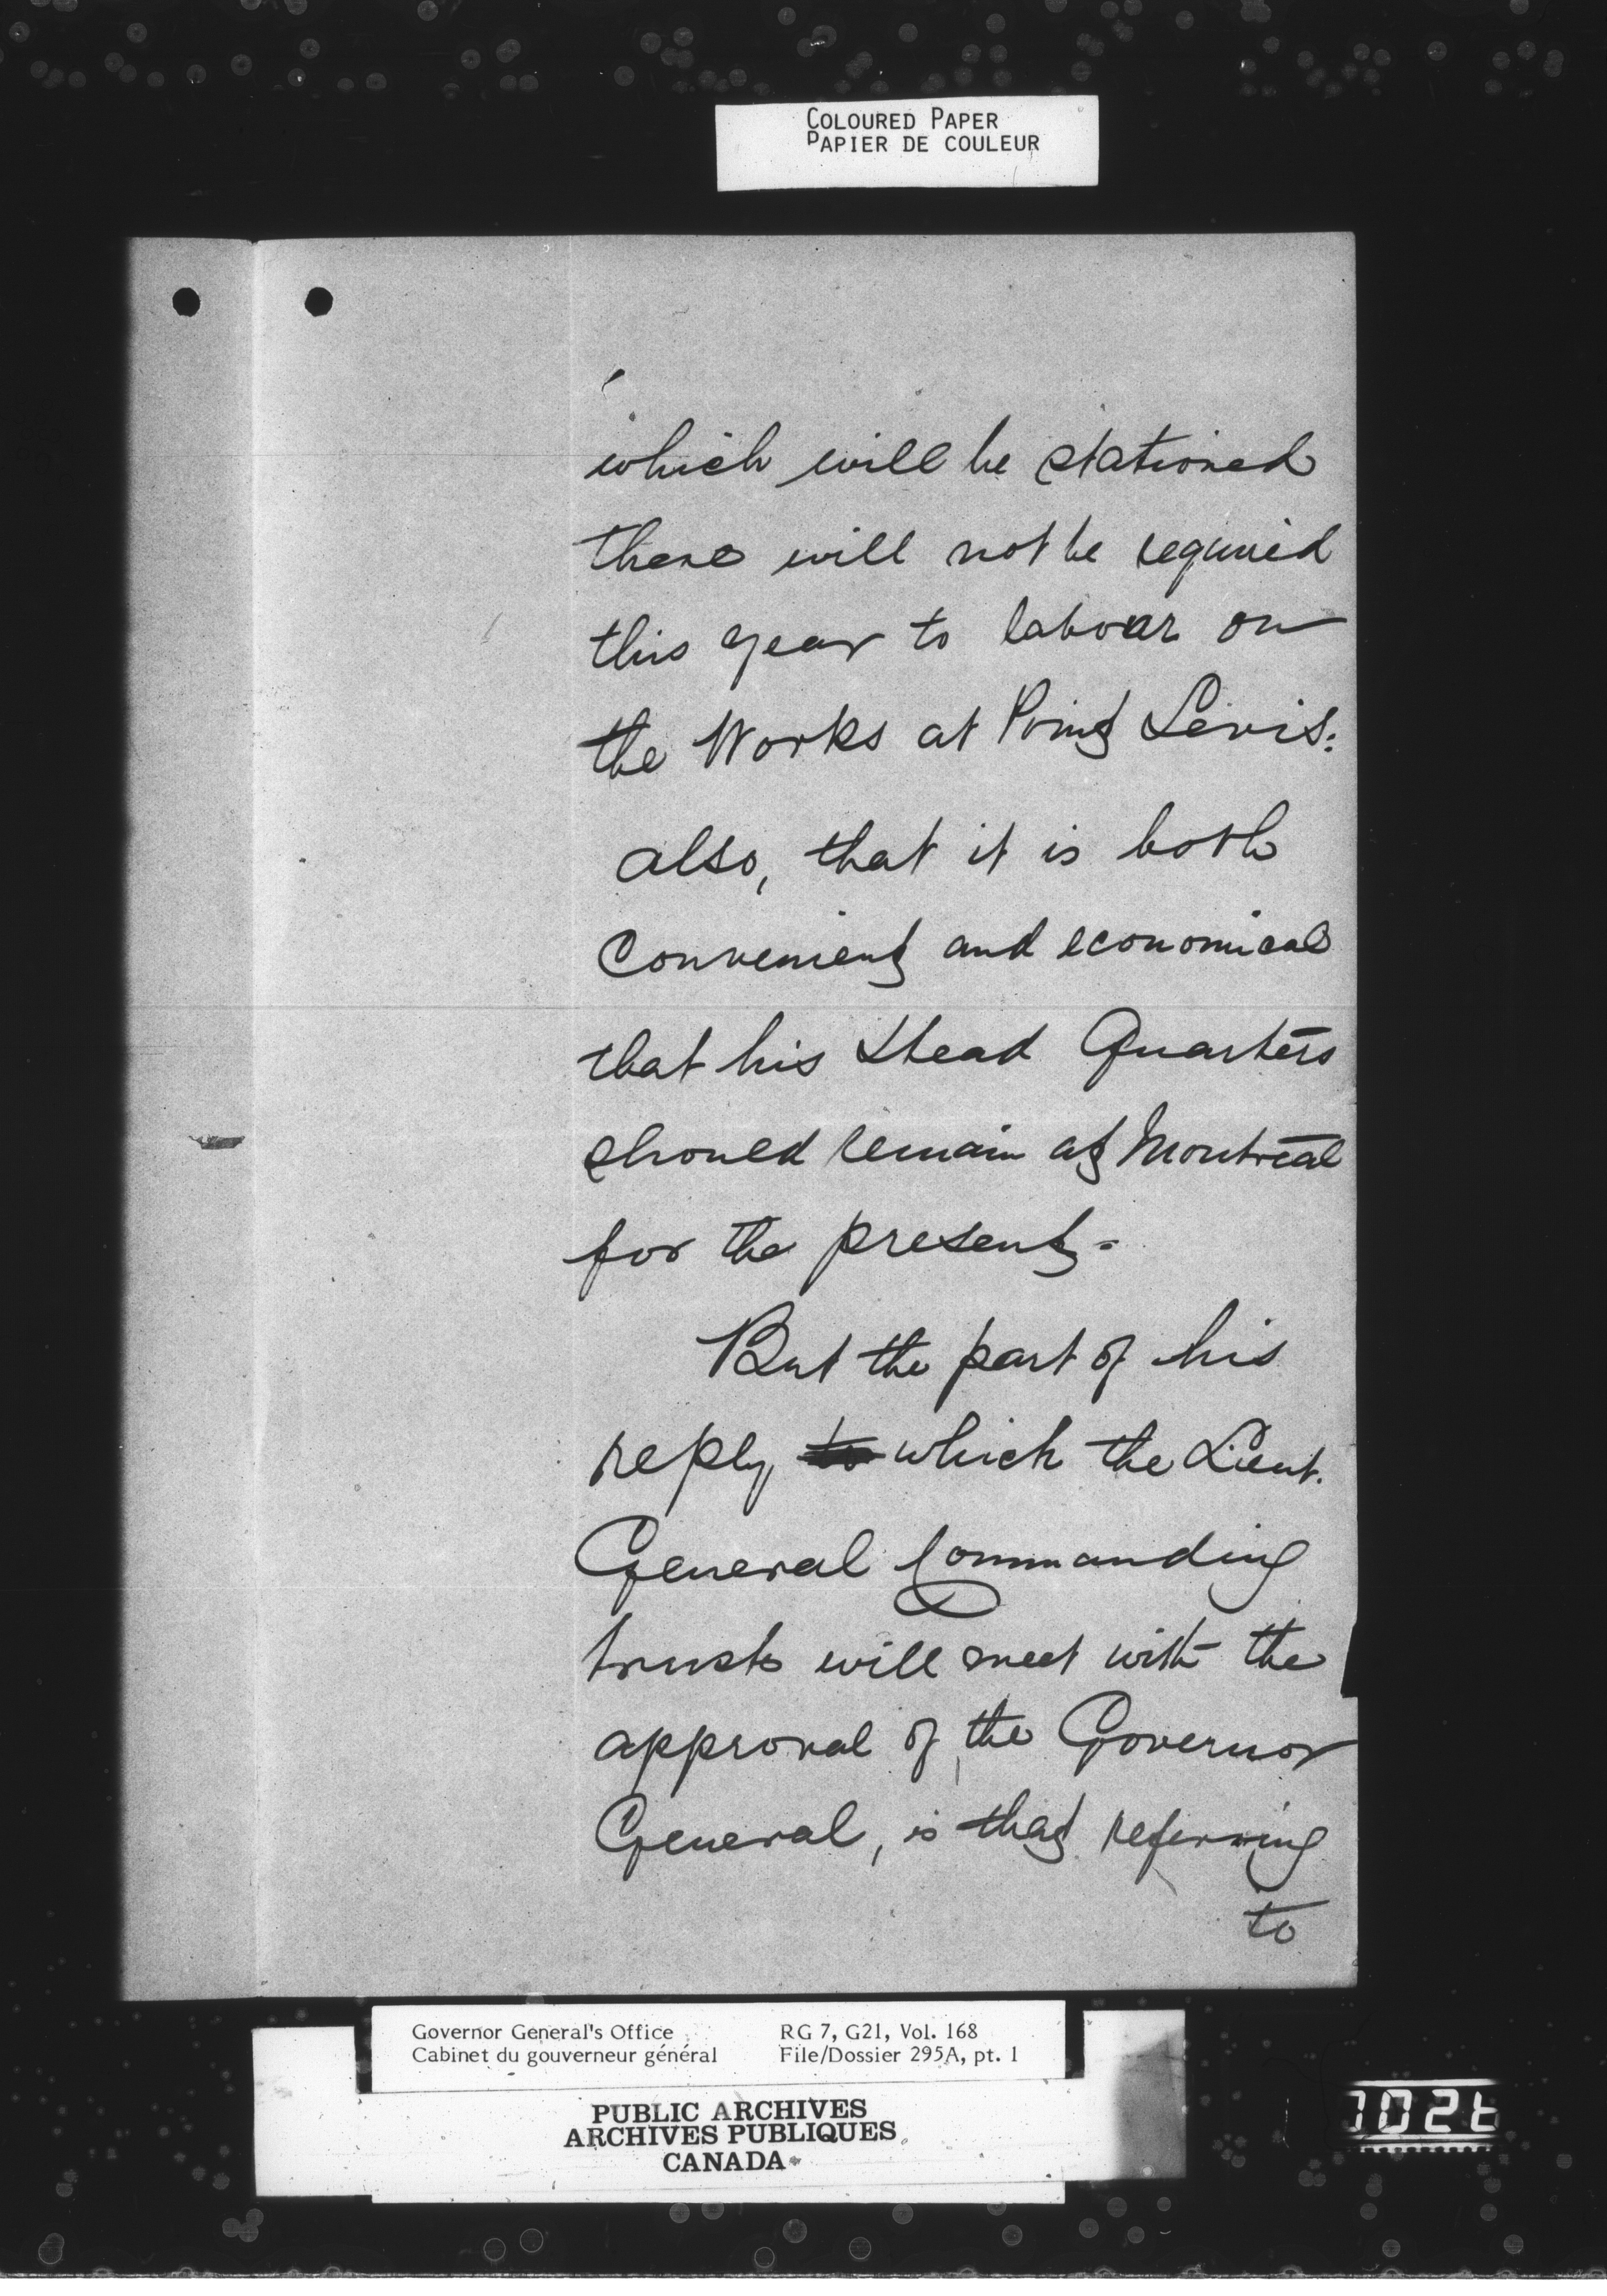 COLOURED PAPER
PAPIER DE COULEUR
which will be stationed
there will not be required
this year to labour on
the Works at Point Levis:
also, that it is both
convenient and economical
that his Head Quarters
should remain at Montreal
for the present.
But the part of his
reply to which the Lieut.
General Commanding
trusts will meet with the
approval of the Governor
General, is that referring
to
Governor General's Office RG 7, G21, Vol. 168
Cabinet du gouverneur général File/Dossier 295A, pt. 1
PUBLIC ARCHIVES
ARCHIVES PUBLIQUES
CANADA